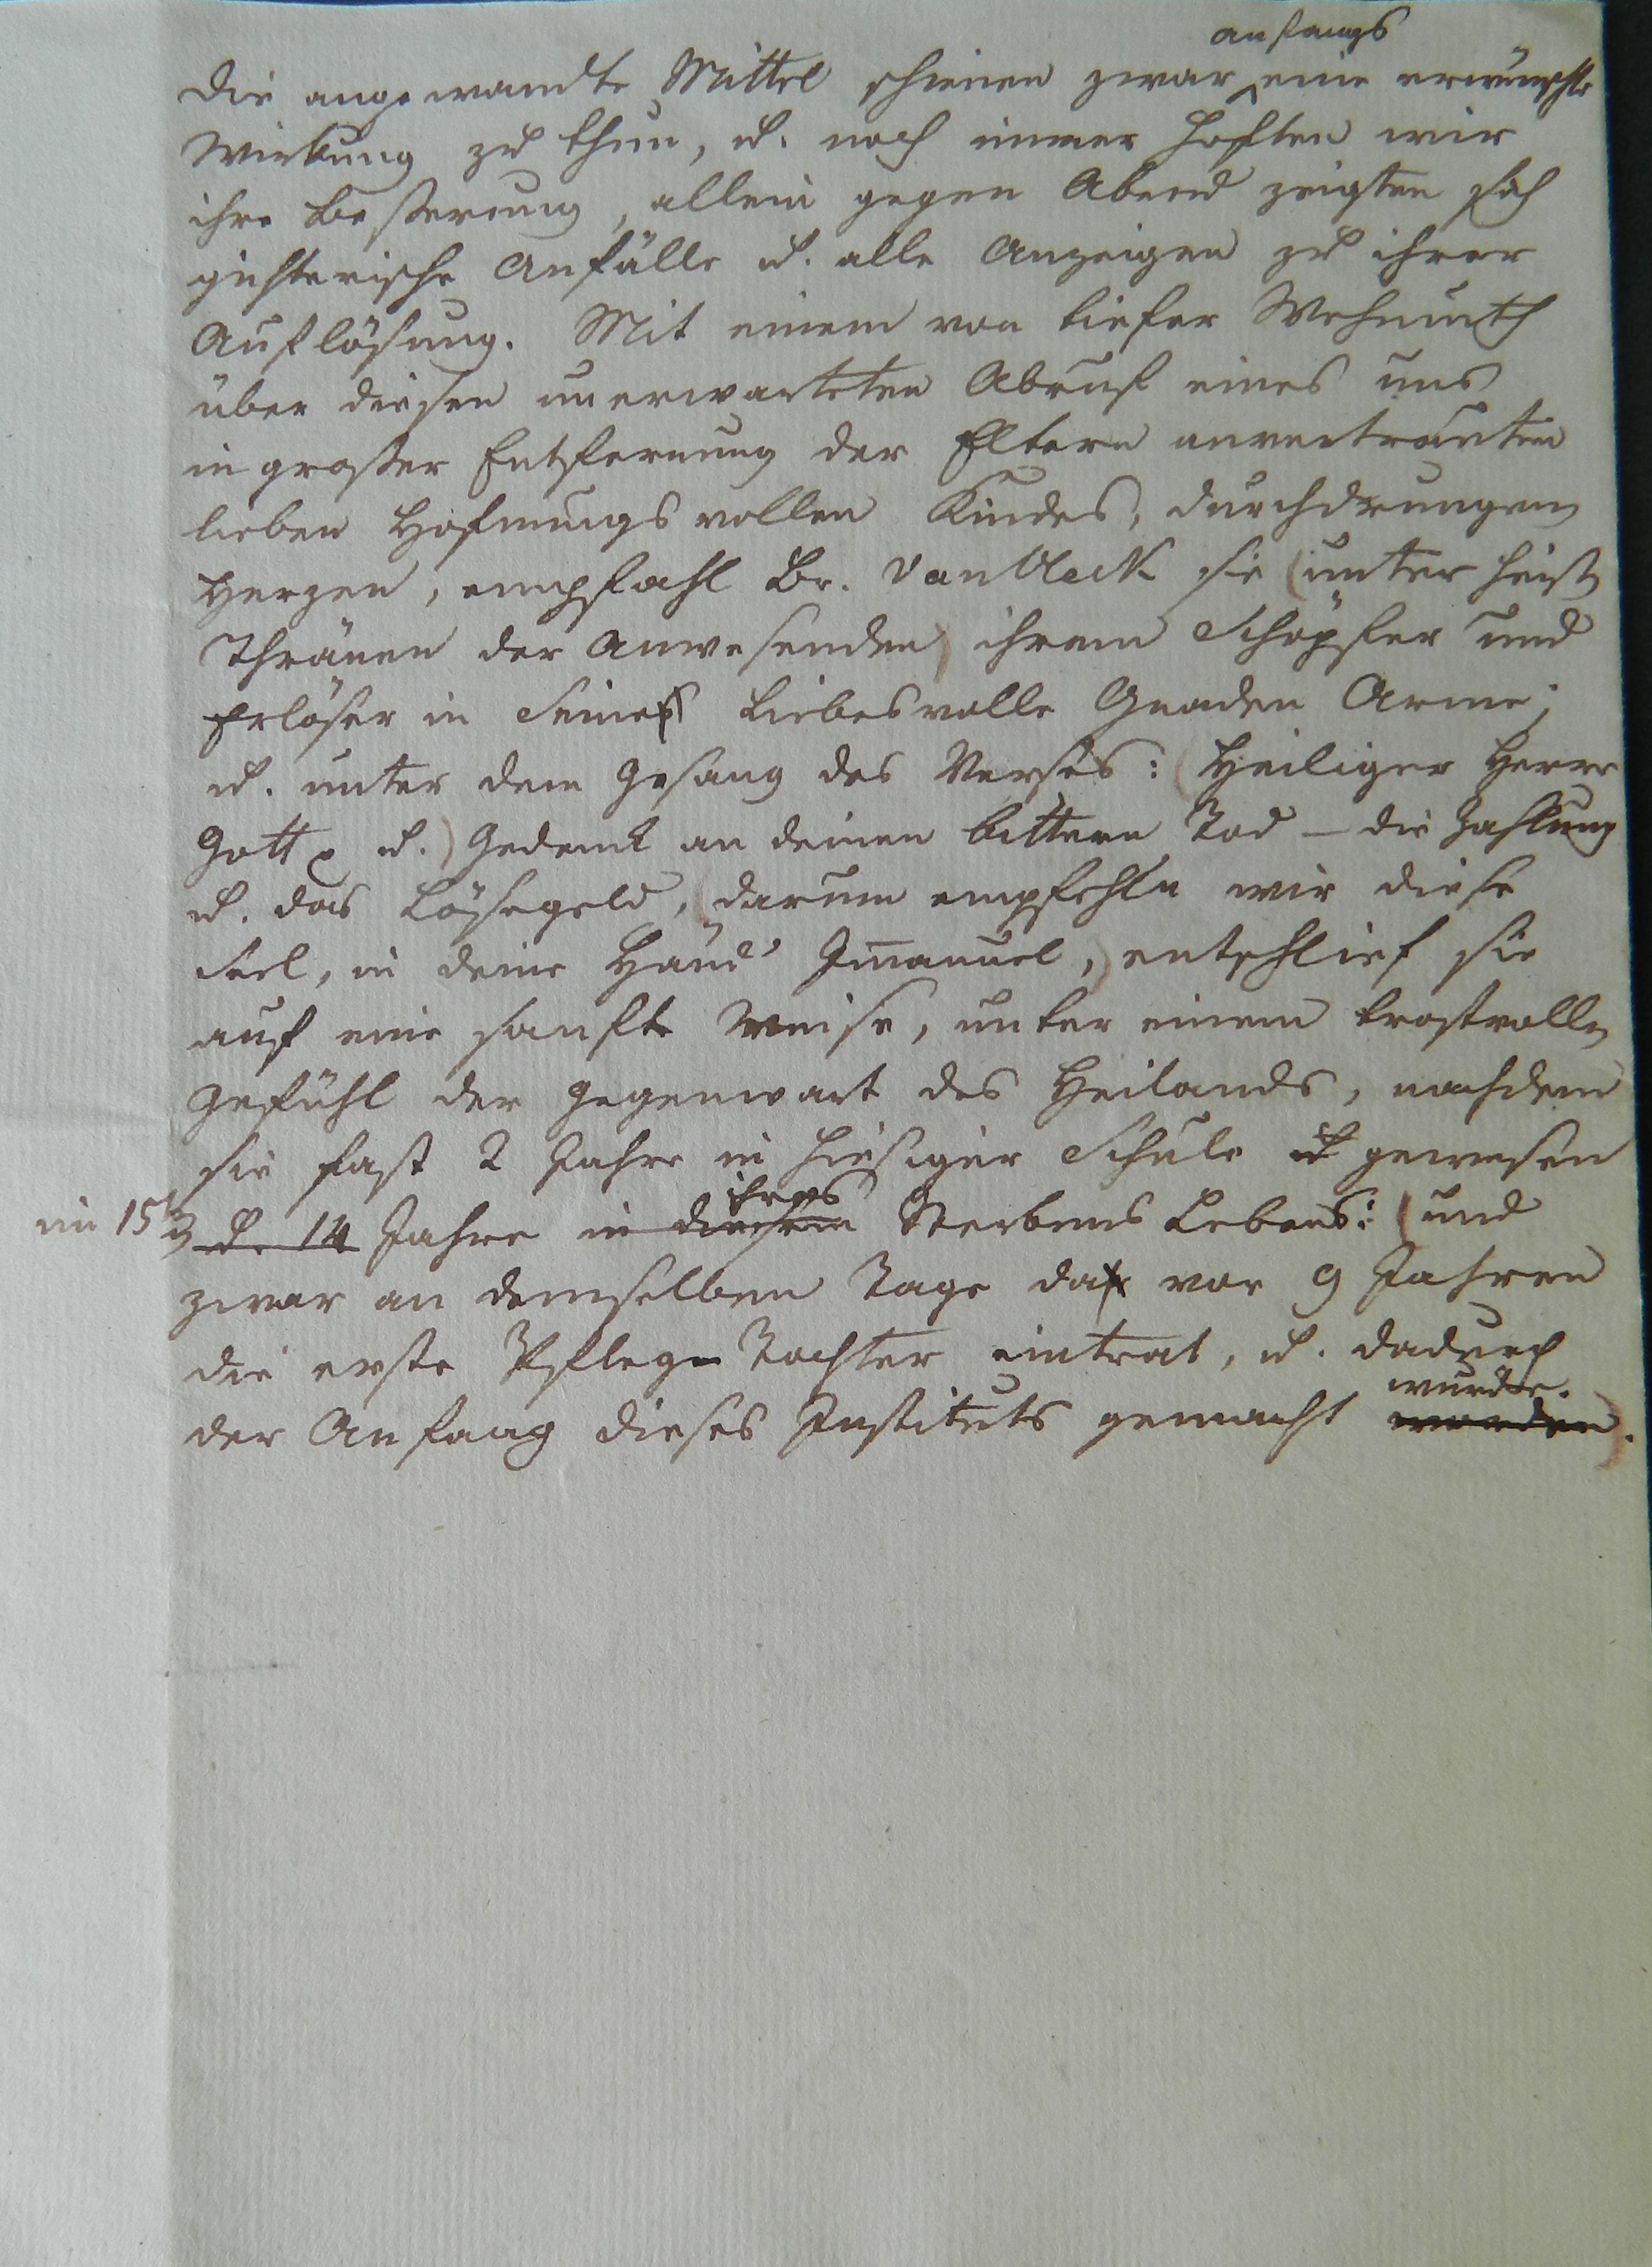 anfangs
Die angewandte Mittel schienen zwar eine erwünschte
Wirkung zu thun, u. noch immer hoften wir
ihre Beßerung, allein gegen Abend zeigten sich
gichterische Anfälle u. alle Anzeigen zu ihrer
Auflösung. Mit einem von tiefer Wehmuth
über diesen unerwarteten Abruf eines uns
in großer Entfernung der Eltern anvertrauten
lieben Hofnungsvollen Kindes, durchdrungenen
Herzen, empfahl Br. Van Vleck sie (unter heißen
Thränen der Anwesenden) ihrem Schöpfer und
Erlöser in Seine Liebesvolle Gnaden Arme;
u. unter dem Gesang des Verses: (Heiliger Herre
Gott p u.) Gedenk an deinen bittern Tod – die Zahlung
u. das Lösegeld, (darum empfehln wir diese
Seel, in deine Händ' Im̅anuel,) entschlief sie
auf eine sanfte Weise, unter einem trostvollen
Gefühl der Gegenwart des Heilands, nachdem
sie fast 2 Jahre in hiesiger Schule u gewesen
ihres
im 15 u. 14 Jahre in diesem Sterbens Lebens: (und
zwar an demselben Tage da vor 9 Jahren
die erste Pflege Tochter eintrat, u. dadurch
wurde.
der Anfang dieses Instituts gemacht worden).